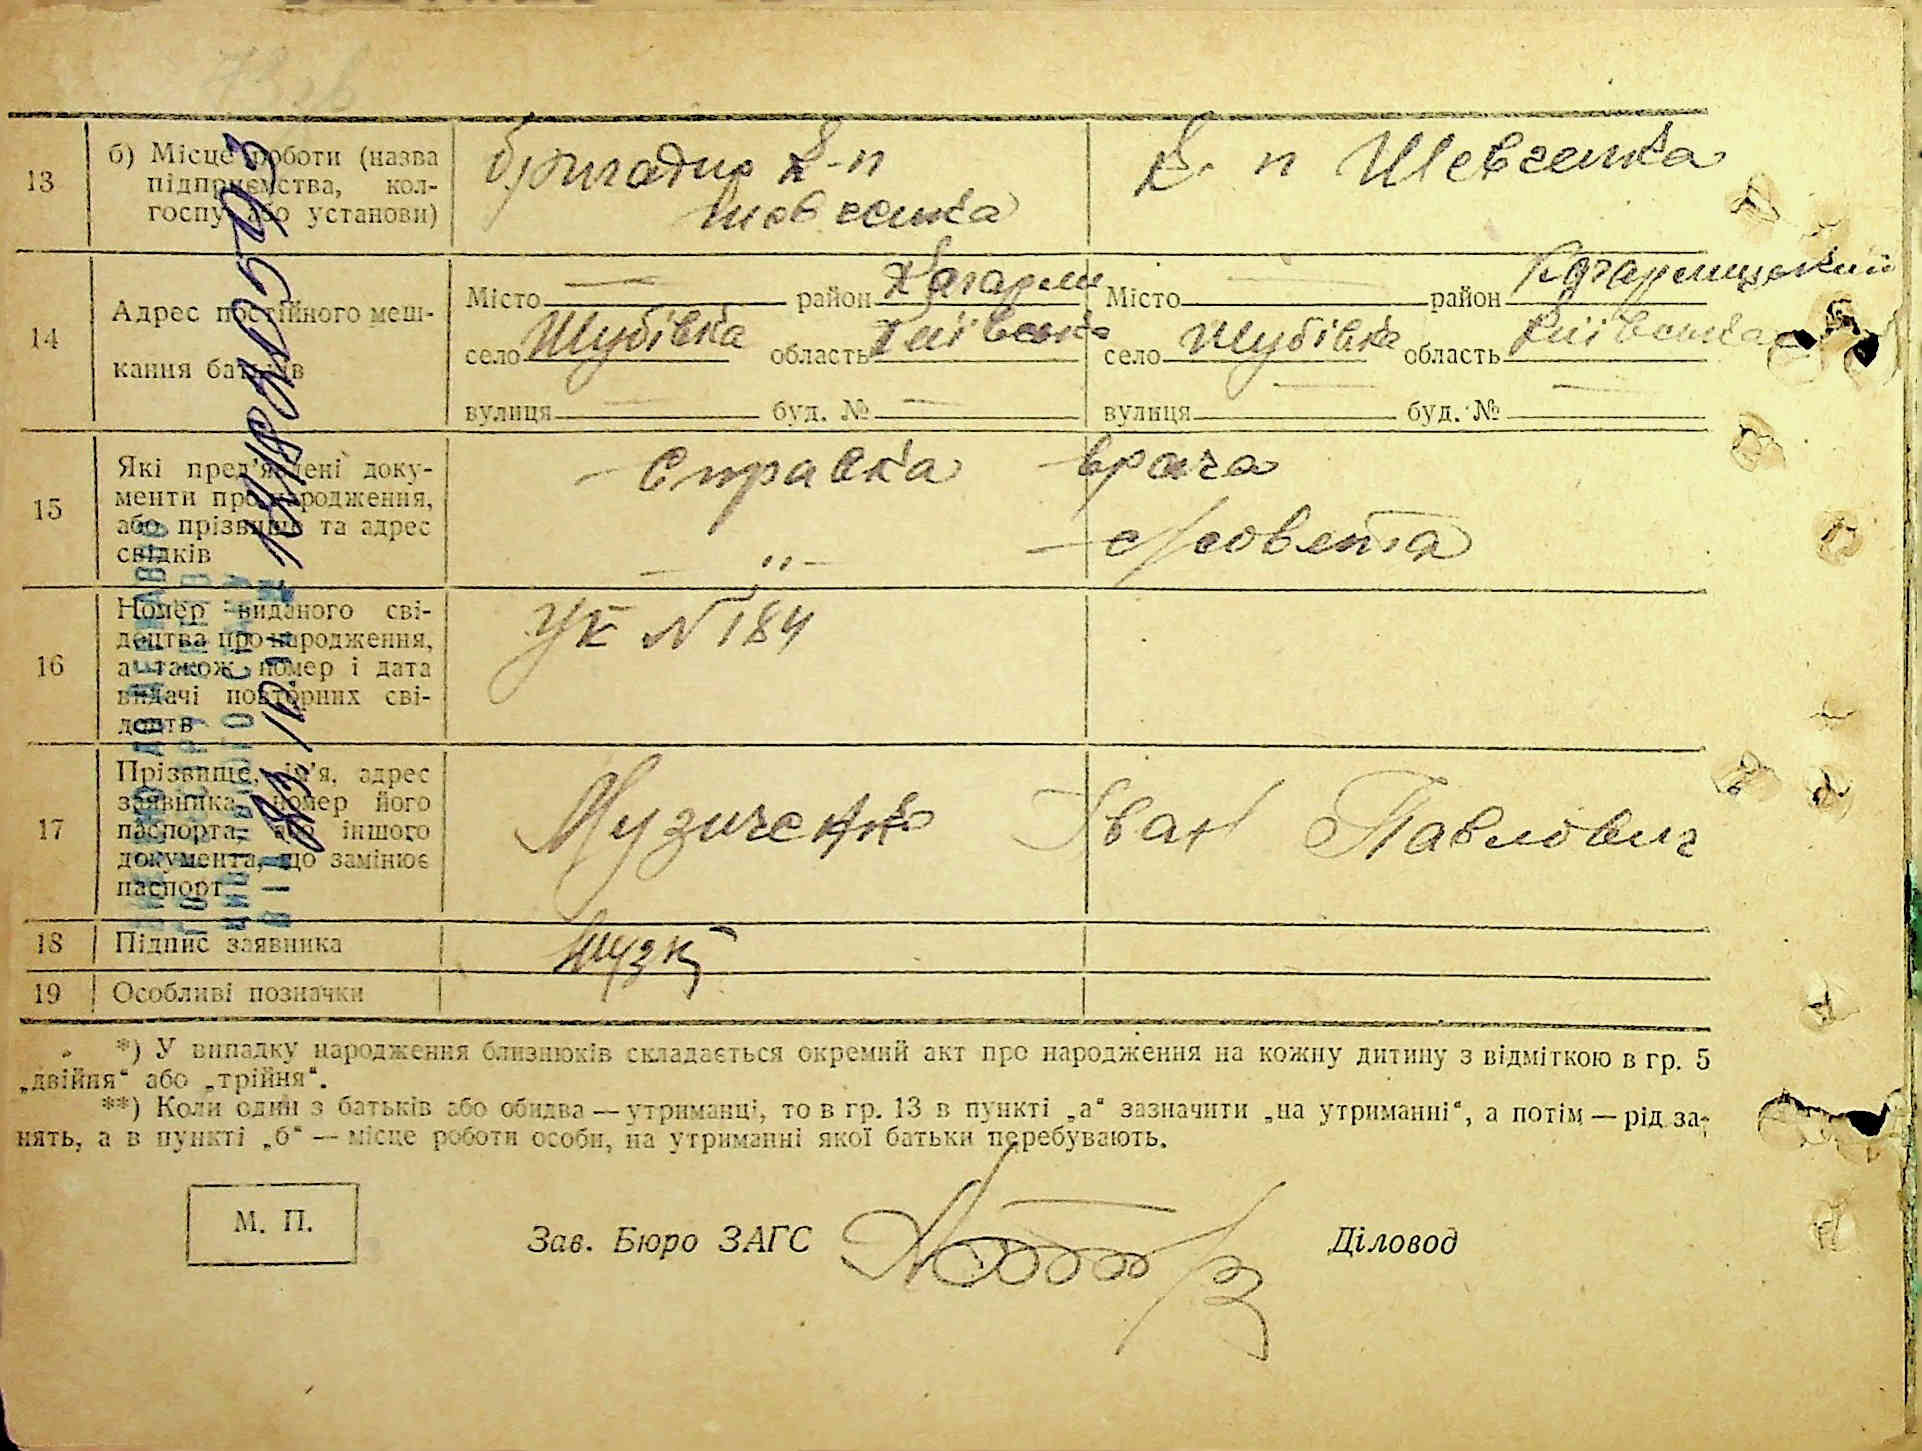 13 б) Місце роботи (назва підприємства, колгоспу або установи)
бригадир к-п
Шевченка
к. п Шевченка
14 Адрес постійного мешкання батьків
Місто — район Кагарли
село Шубівка область Київська
вулиця — буд. № —
Місто — район Кагарлицький
село Шубівка область Київська
вулиця — буд. № —
15 Які пред'явлені документи про народження, або прізвище та адрес свідків
Справка врача
— " — с/совета
16 Номер виданого свідоцтва про народження, а також номер і дата видачі повторних свідоцтв
УК № 184
17 Прізвище, ім'я, адрес заявника, номер його паспорта, або іншого документа, що замінює паспорт
Музиченко Іван Павлович
18 Підпис заявника
19 Особливі позначки
*) У випадку народження близнюків складається окремий акт про народження на кожну дитину з відміткою в гр. 5
„двійня“ або „трійня“.
**) Коли один з батьків або обидва — утриманці, то в гр. 13 в пункті „а“ зазначити „на утриманні“, а потім — рід за-
нять, а в пункті „б“ — місце роботи особи, на утриманні якої батьки перебувають.
М. П.
Зав. Бюро ЗАГС
Діловод